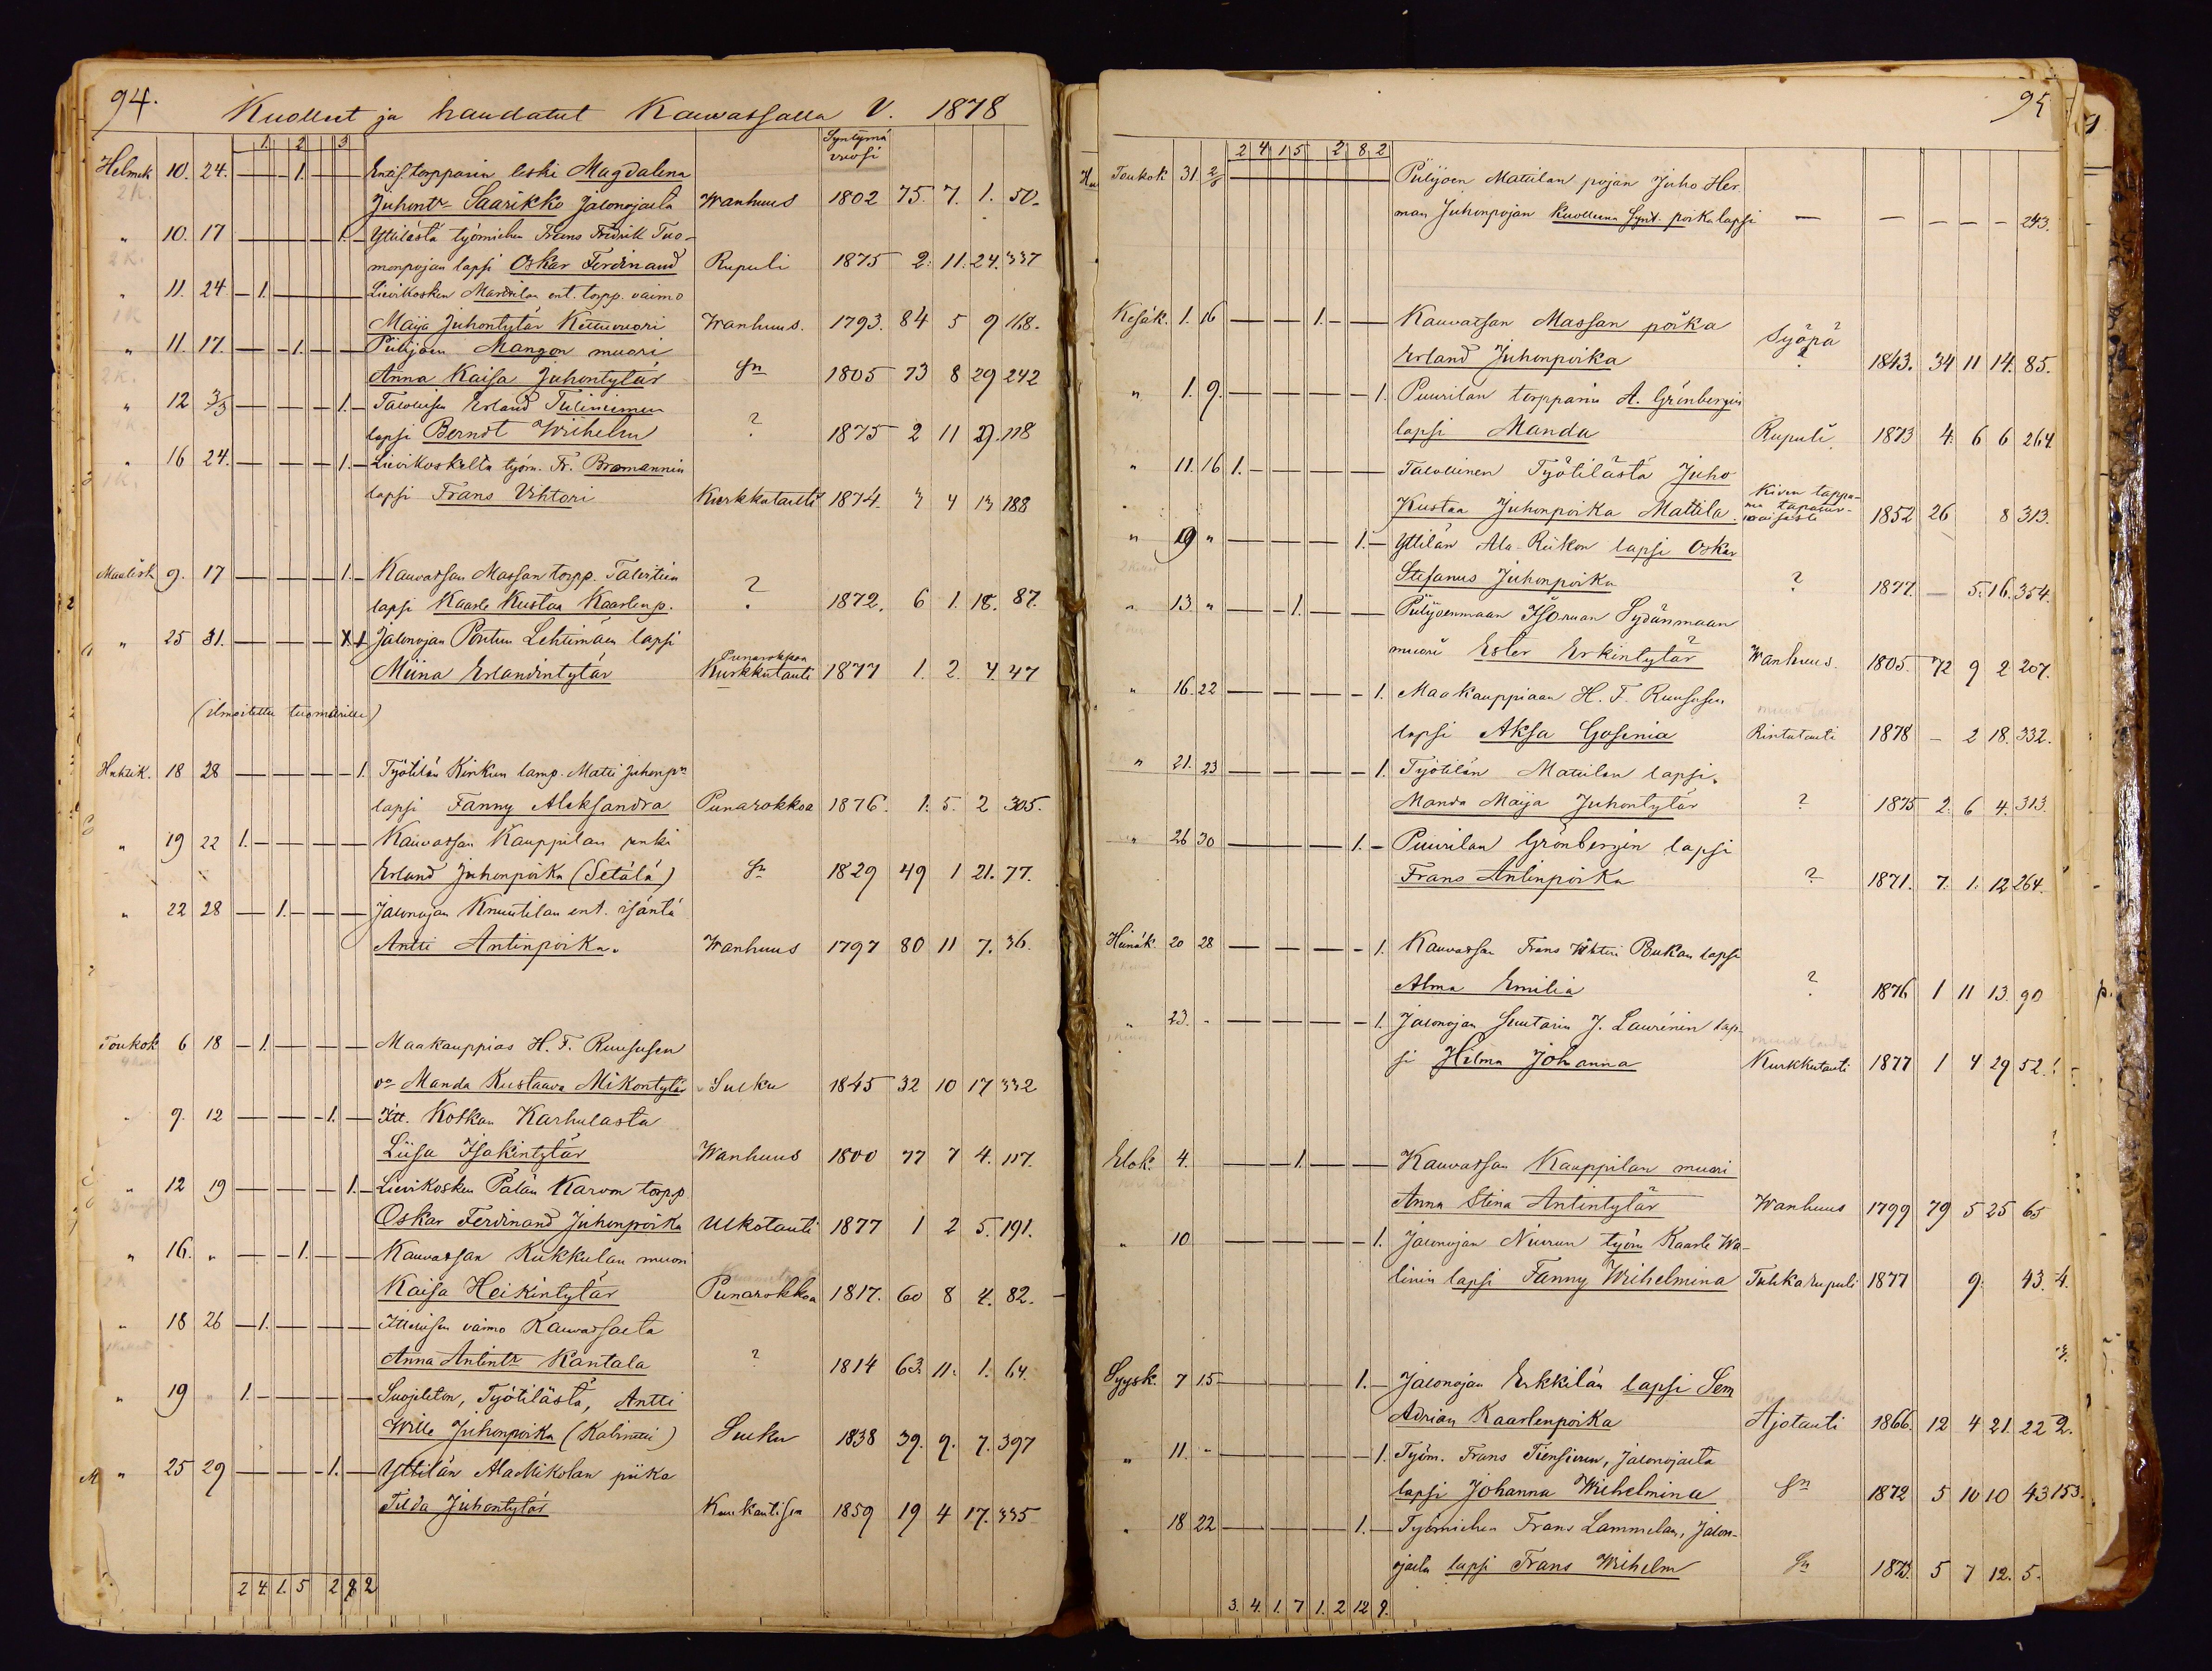 94.
Kuolleet ja haudatut Kauwatsalla V. 1878
1. 2 3 Syntymä vuosi
Helmik 10. 24. 1. Entis torpparin leski Magdalena
Juhontr Saarikko Jalonojalta Wanhuus 1802 75. 7. 1. 50.
" 10. 17 1. Yttilästä työmiehen Frans Fredrik Tuo-
monpojan lapsi Oskar Ferdinand Rupuli 1875 2. 11. 24. 337
" 11. 24 1. Lievikosken ent. torpp. vaimo
Maija Juhontytär Wanhuus. 1793. 84 5 9 168.
" 11. 17. 1. Piilijoen Mangon muori
Anna Kaisa Juhontytär Sn 1805 73 8 29 242
" 12 3/3 1. Erland
lapsi Berndt Wilhelm ? 1875 2 11 118
" 16 24. 1. Lievikoskelta työm. Fr. Bromannin
lapsi Frans Vihtori Kurkkutauti 1874. 3 4 13 188
Maalisk 9. 17 1. Kauvatsan Massan torpp.
lapsi Kaarle Kustaa Kaarlenp. ? 1872. 6 1. 18. 87.
" 25 31. x 1 Jalonojan Pontun Lehtimäen lapsi
Punarokkoa
Miina Erlandintytär Kurkkutauti 1877 1. 2. 4. 47
(ilmoitettu tuomarille)
Huhtik. 18 28 1. Työtilän Kinkun Matti Juhonpn
lapsi Fanny Aleksandra Punarokkoa 1876. 1. 5. 2 305.
" 19 22 1. Kauvatsan Kauppilan renki
Erland Juhonpoika (Setälä) Sn 1829 49 1 21. 77.
" 22 28 1. Jalonojan Knuutilan ent. isäntä
Antti Antinpoika. Wanhuus 1797 80 11 7. 36.
Toukok 6 18 1. Maakauppias H. F. Ruususen
vo Manda Kustaava Mikontytär 1845 32 10 17 332
" 9. 12 1. Itt. Koskan Karhulasta
Liisa Isakintytär Wanhuus 1800 77 7 4. 117.
" 12 19 1. Lievikosken Pälän Karvon torpp
Oskar Ferdinand Juhonpoika Ulkotauti 1877 1 2 5. 191.
" 16. " 1. Kauvatsan Kukkulan muori
Kaisa Heikintytär Punarokkoa 1817. 60 8 4. 82.
" 18 26 1. Ittellisen vaimo Kauvatsalta
Anna Antintr Kantala ? 1814 63. 11. 1. 64.
" 19 " 1. Suojeleton, Työtilästä, Antti
Wille Juhonpoika 1838 39. 9. 7. 397
" 25 29 1. Yttilän AlaMikolan piika
Tilda Juhontytär 1859 19 4 17. 335
2 4 1. 5 2 8 2
95
2 4 1 5 2 8 2
Toukok 31. 2/6 Piilijoen Matilan pojan Juho Her-
man Juhonpojan kuolleena Synt. poikalapsi — — — — — 243.
Kesäk. 1. 16 1. Kauvatsan Massan poika
Erland Juhonpoika Syöpä ? 1843. 34 11 14. 85.
" 1. 9. 1. Puurilan torpparin A. Grönbergin
lapsi Manda Rupuli 1873 4. 6 6 264.
" 11. 16 1. Talollinen Työtilästä Juho
Kustaa Juhonpoika Mattila Kiven tappa-
ma tapatur-
maisesti 1852 26 8 313.
" 19 " 1. Yttilän Ala-Riikon lapsi Oskar
Stefanus Juhonpoika ? 1877 — 5. 16. 354.
" 13 " 1. Piilijoenmaan Sydänmaan
muori Ester Erkintytär Wanhuus. 1805. 72 9 2 207.
" 16. 22 1. Maakauppiaan H. F. Ruususen
lapsi Aksa Gosinia Rintatauti 1878 — 2 18. 332.
" 21. 23 1. Työtilän Matilan lapsi.
Manda Maija Juhontytär ? 1875 2. 6 4. 313
" 26 30 1. Puurilan Grönbergin lapsi
Frans Antinpoika ? 1871. 7. 1. 12 264.
Heinäk. 20 28 1. Kauvatsan Frans Vihtori Pukan lapsi
Alma Emilia ? 1876 1 11 13. 90
" 23. - 1. Jalonojan Suutarin J. Laurénin lap-
si Hilma Johanna Kurkkutauti 1877 1 4 29 52.
Elok. 4. 1. Kauvatsan Kauppilan muori
Anna Stina Antintytär Wanhuus 1799 79 5 25 65
" 10 1. Jalonojan työm Kaarle Wa-
linin lapsi Fanny Wilhelmina Tuhkarupuli 1877 9. 43. 4.
Syysk. 7 15 1. Jalonojan Erkkilän lapsi Sem
Adrian Kaarlenpoika Ajotauti 1866. 12 4 21. 22 2.
" 11. - 1. Työm. Frans Tiensuun, Jalonojalta
lapsi Johanna Wilhelmina Sn 1872 5 10 10 43 153.
" 18 22 1. Työmiehen Frans Lammelan, Jalon-
ojalta lapsi Frans Wilhelm Sn 1873. 5 7 12. 5.
3. 4. 1. 7 1. 2 12 9.